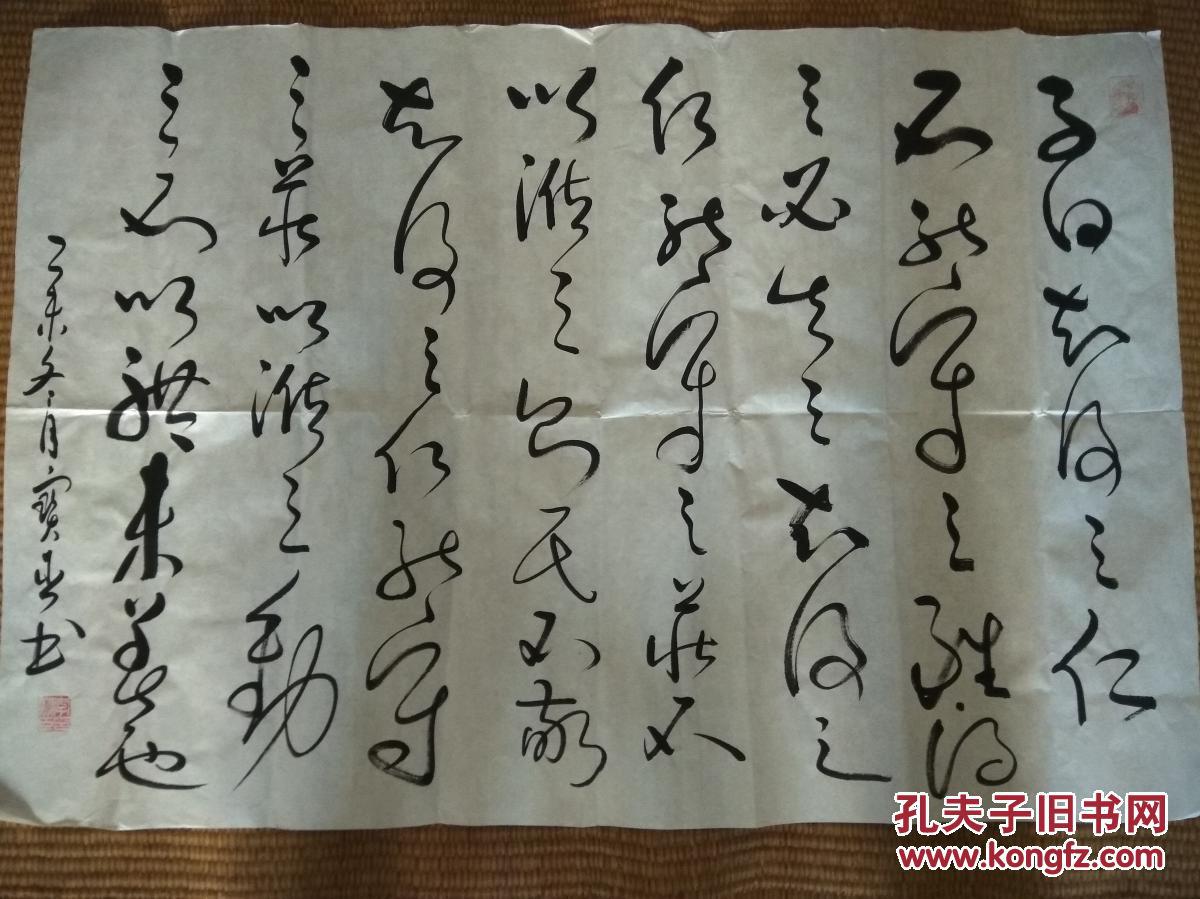 子曰知及之仁
不能守之雖得
之必失之知及之
仁能守之莊不
以涖之則民不敬
知及之仁能守
之莊以涖之動
之不以禮未善也
乙未冬月寶书
孔夫子旧书网
www.kongfz.com